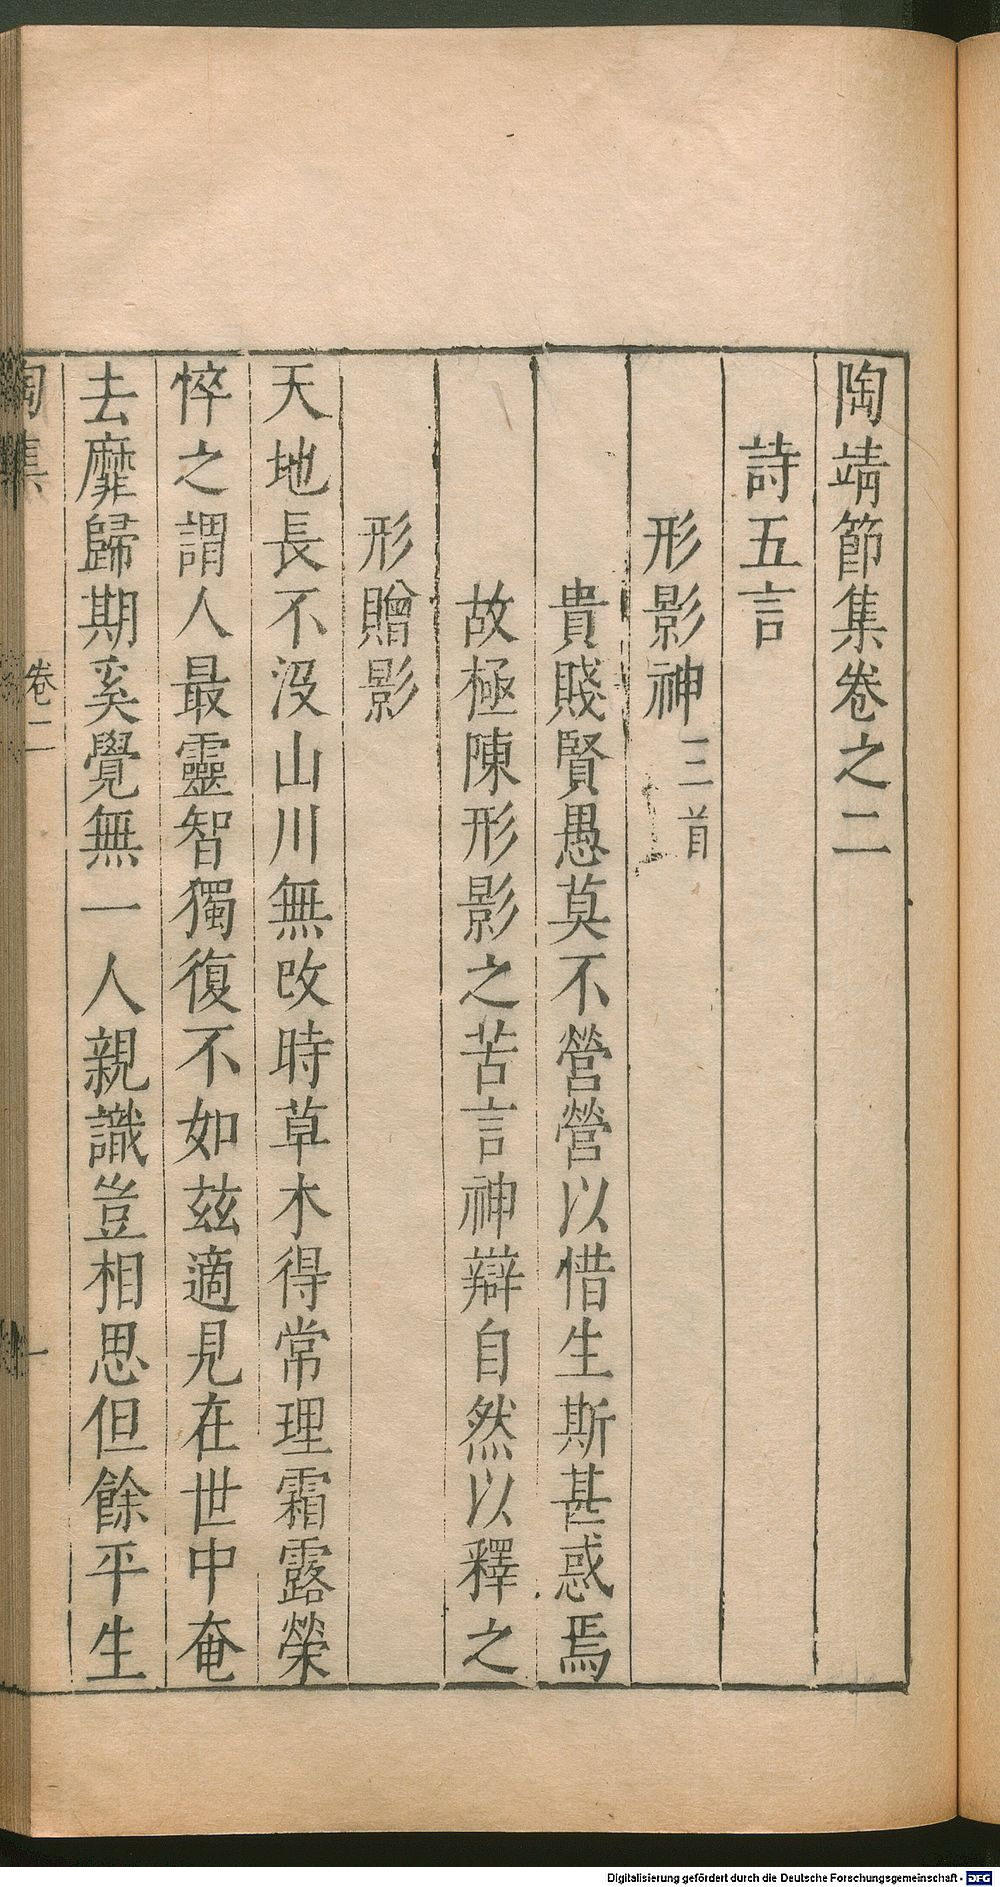 陶靖節集卷之二
詩五言
形影神三首
貴賤賢愚莫不營營以惜生斯甚惑焉
故極陳形影之苦言神辯自然以釋之
形贈影
天地長不沒山川無改時草木得常理霜露榮
悴之謂人最靈智獨復不如玆適見在世中奄
去靡歸期奚覺無一人親識豈相思但餘平生
陶集
卷二
一
Digitalisierung gefördert durch die Deutsche Forschungsgemeinschaft - DFG